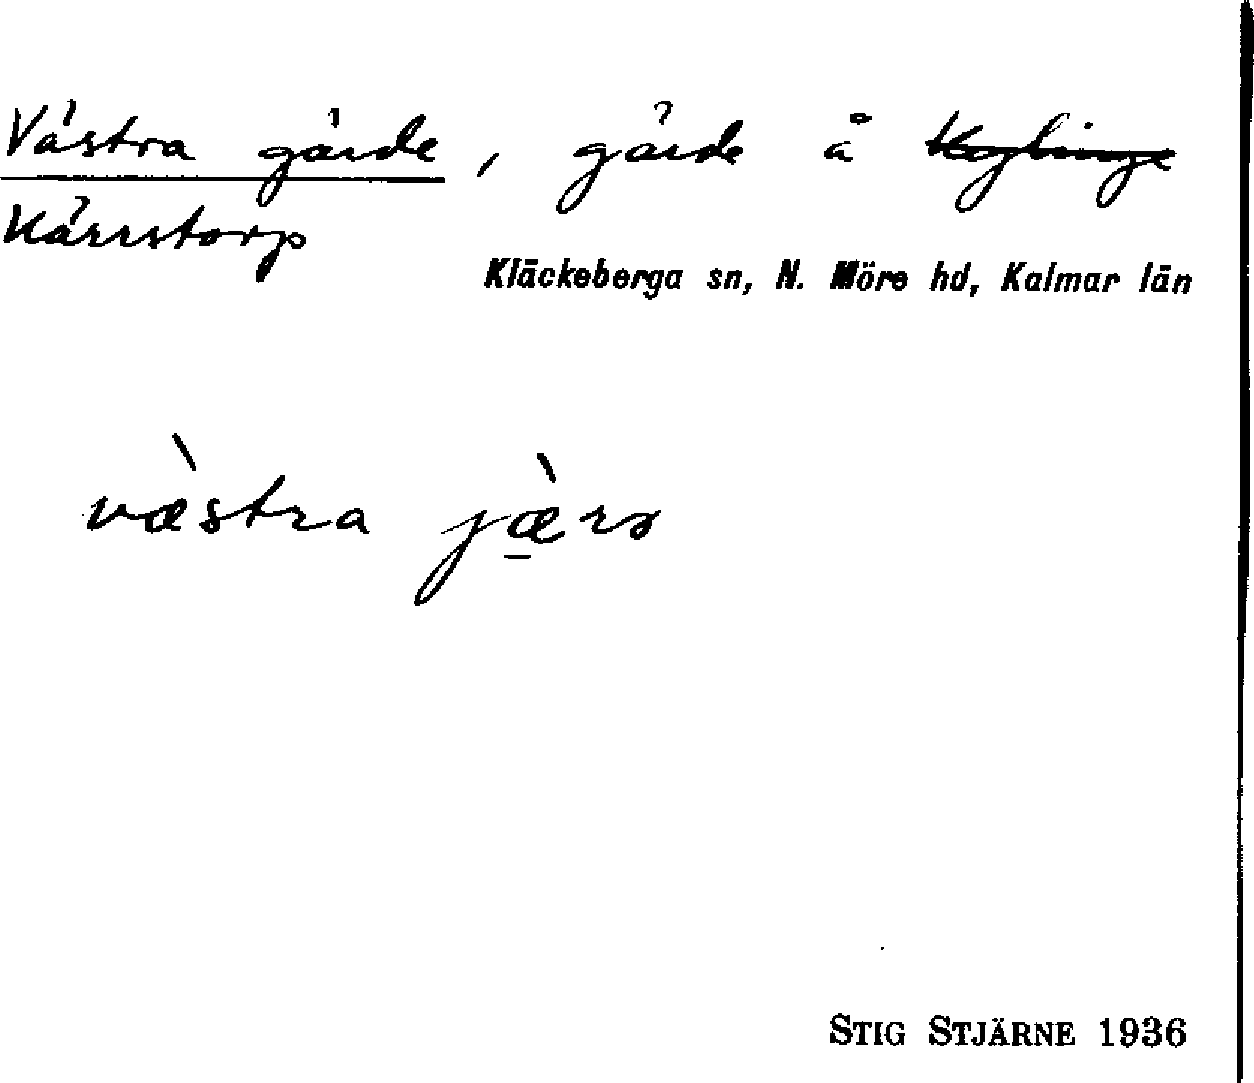 Västra gärde, gärde å
Kärrstorp
Kläckeberga sn, N. Möre hd, Kalmar län
væ̀stra jæ̱̀rə
STIG STJÄRNE 1936